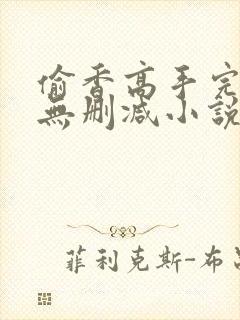 偷香高手完
無删减小說
菲利克斯-布